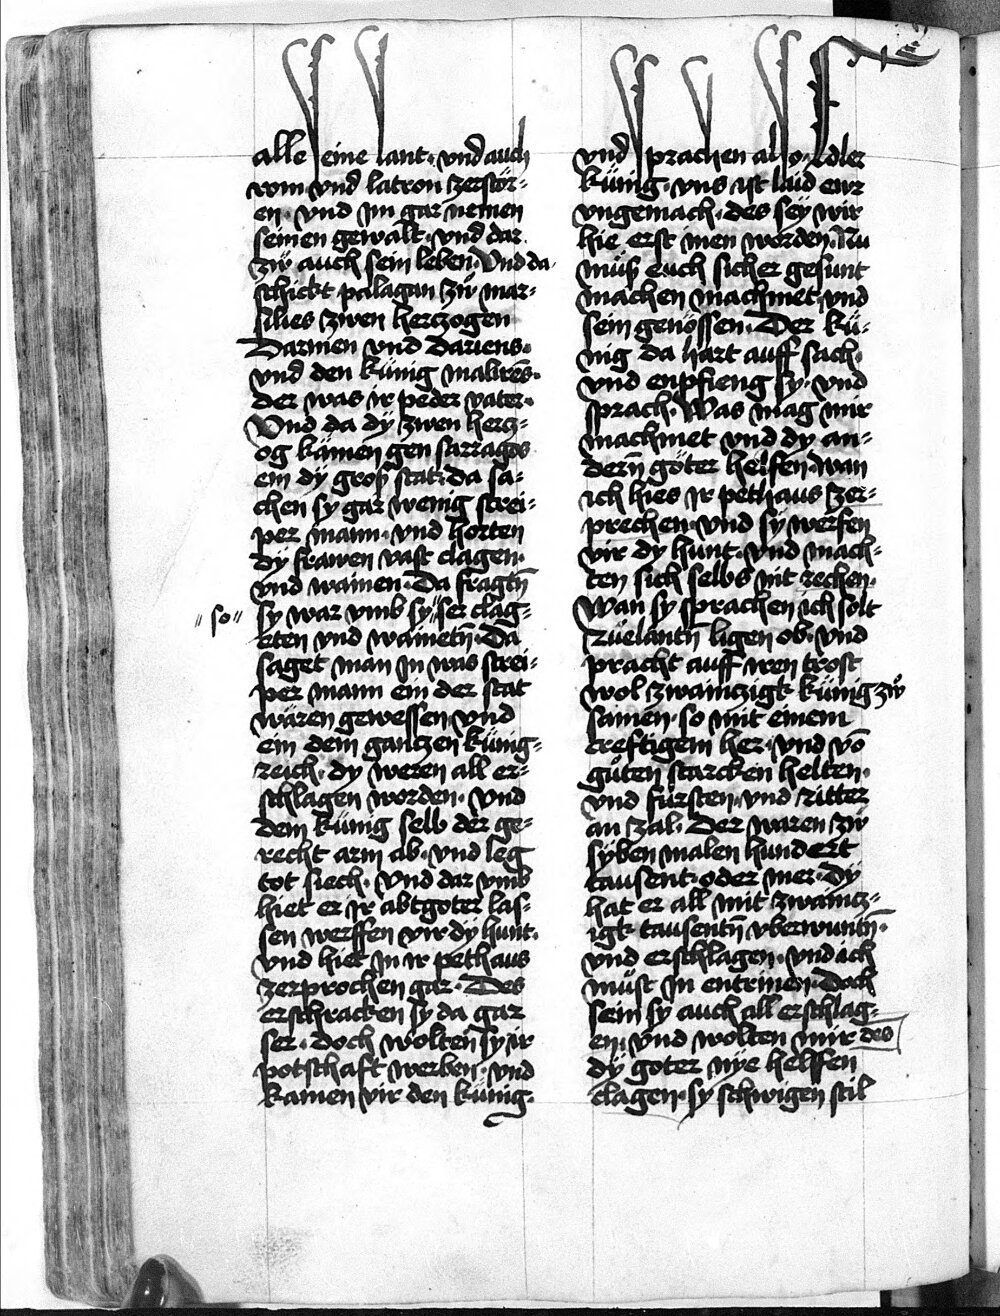 alle seine lant · vnd auch
rom vnd latron zerstör⸗
en · vnd Im gar nemen
seinen gewalt · vnd dar
zů auch sein leben · Vnd da
schickt palagan zů mar⸗
silies zwen herczogen
Darmen vnd dariens ·
vnd den künig mabrēs ·
der was ir peder vater ·
Vnd da dÿ zwen hercz⸗
og kämen gen sarragos
ein dÿ groß stat · da sa⸗
chen sy gar wenig strei⸗
per mann · vnd horten
dÿ frawen vast clagen ·
vnd wainen · Da fragtn̄
sy war vmb sy " ser clag⸗
" so "
eten vnd wainetn̄ · Da
saget man In was strei⸗
per mann ein der stat
wären gewessen vnd
ein dem gantzen künig⸗
reich · dy weren all er⸗
schlagen worden · Vnd
dem künig selb der ge⸗
recht arm ab · vnd leg
tot siech · Vnd dar vmb
hiet er ir abtgoter las⸗
sen werffen vir dÿ hunt ·
vnd hiet In ir pethaus
zerprochen gar · Des
erschracken sy da gar
ser · doch wolten sy ir
potschaft werben · vnd
kamen vir den künig ·
vnd sprachen also · Edler
künig · vns ist laid ewr
vngemach · des seÿ wir
hie erst Inen worden · Nu
müß euch sicher gesunt
machen machmet vnd
sein genössen · Der kü⸗
nig da hart auff sach ·
vnd enpfieng sy · vnd
sprach · Was mag mir
machmet vnd dy an⸗
dern̄ göter helfen · wan
ich hies ir pethaus zer⸗
prechen · vnd sy werfen
vir dy hunt · vnd mach⸗
ten sich selbs nit rechen ·
Wan sy sprachen ich solt
rüelantn̄ ligen ob · vnd
pracht auff iren trost
wol zwainczigk künig zů
samen · so mit einem
creftigem her · vnd vō
gůten starcken helten ·
vnd fürsten vnd ritter
an zal · Der waren zů
syben malen hundert
tausent · oder mer · Dÿ
hat er all mit zwaincz⸗
igk tausentn̄ vberwuntn̄ ·
vnd erschlagen · vnd ich
müst In entrinen · Doch
sein sy auch all erschlag⸗
en · vnd wolten mir des
dÿ goter nÿe helffen
clagen · sy schwigen stil